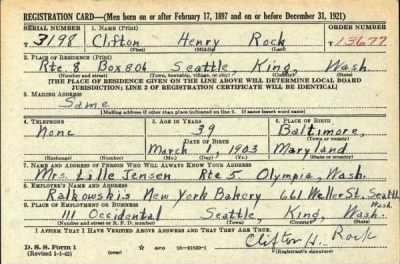 REGISTRATION CARD—(Men born on or after February 17, 1897 and on or before December 31, 1921)
SERIAL NUMBER 1. NAME (Print) ORDER NUMBER
3198 Clifton Henry Rock 13677
(First) (Middle) (Last)
2. PLACE OF RESIDENCE (Print)
Rte. 8 Box 806 Seattle, King, Wash
(Number and street) (Town, township, village, or city) (County) (State)
[THE PLACE OF RESIDENCE GIVEN ON THE LINE ABOVE WILL DETERMINE LOCAL BOARD
JURISDICTION; LINE 2 OF REGISTRATION CERTIFICATE WILL BE IDENTICAL]
3. MAILING ADDRESS
Same
[Mailing address if other than place indicated on line 2. If same insert word same]
4. TELEPHONE 5. AGE IN YEARS 6. PLACE OF BIRTH
None 39 Baltimore,
DATE OF BIRTH (Town or county)
March 1, 1903 Maryland
(Exchange) (Number) (Mo.) (Day) (Yr.) (State or country)
7. NAME AND ADDRESS OF PERSON WHO WILL ALWAYS KNOW YOUR ADDRESS
Mrs. Lille Jensen Rte 5 Olympia, Wash.
8. EMPLOYER'S NAME AND ADDRESS
Ralkowskis New York Bakery 661 Weller St. Seattle
Wash
9. PLACE OF EMPLOYMENT OR BUSINESS
111 Occidental Seattle, King, Wash.
(Number and street or R. F. D. number) (Town) (County) (State)
I AFFIRM THAT I HAVE VERIFIED ABOVE ANSWERS AND THAT THEY ARE TRUE.
Clifton H. Rock
D. S. S. Form 1
(Revised 1-1-42) (over) GPO 16—21630-1 (Registrant's signature)